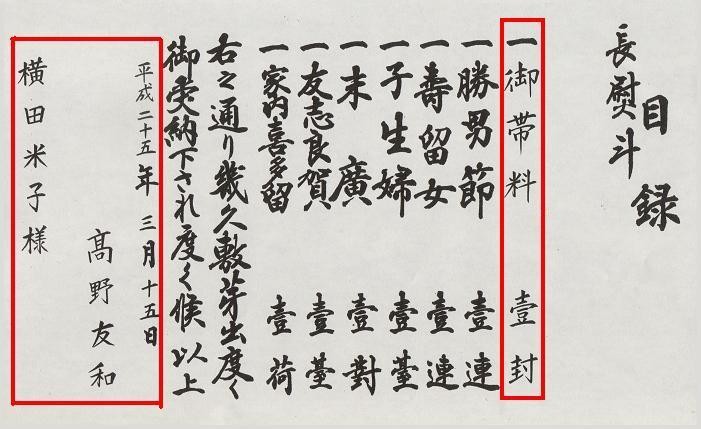 目録
長熨斗
一御帯料 壹封
一勝男節 壹連
一壽留女 壹連
一子生婦 壹䑓
一末廣 壹對
一友志良賀 壹䑓
一家内喜多留 壹荷
右之通り幾久敷芽出度く
御受納下され度く候以上
平成二十五年三月十五日
髙野友和
横田米子様